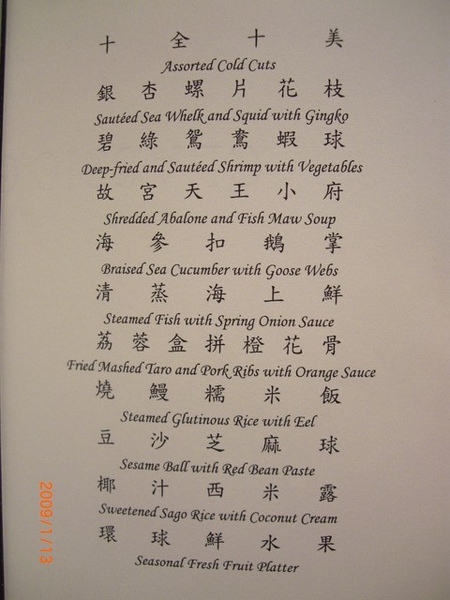 十全十美
Assorted Cold Cuts
銀杏螺片花枝
Sautéed Sea Whelk and Squid with Gingko
碧綠鴛鴦蝦球
Deep-fried and Sautéed Shrimp with Vegetables
故宮天王小府
Shredded Abalone and Fish Maw Soup
海參扣鵝掌
Braised Sea Cucumber with Goose Webs
清蒸海上鮮
Steamed Fish with Spring Onion Sauce
荔蓉盒拼橙花骨
Fried Mashed Taro and Pork Ribs with Orange Sauce
燒鰻糯米飯
Steamed Glutinous Rice with Eel
豆沙芝麻球
Sesame Ball with Red Bean Paste
椰汁西米露
Sweetened Sago Rice with Coconut Cream
環球鮮水果
Seasonal Fresh Fruit Platter
2009/1/13